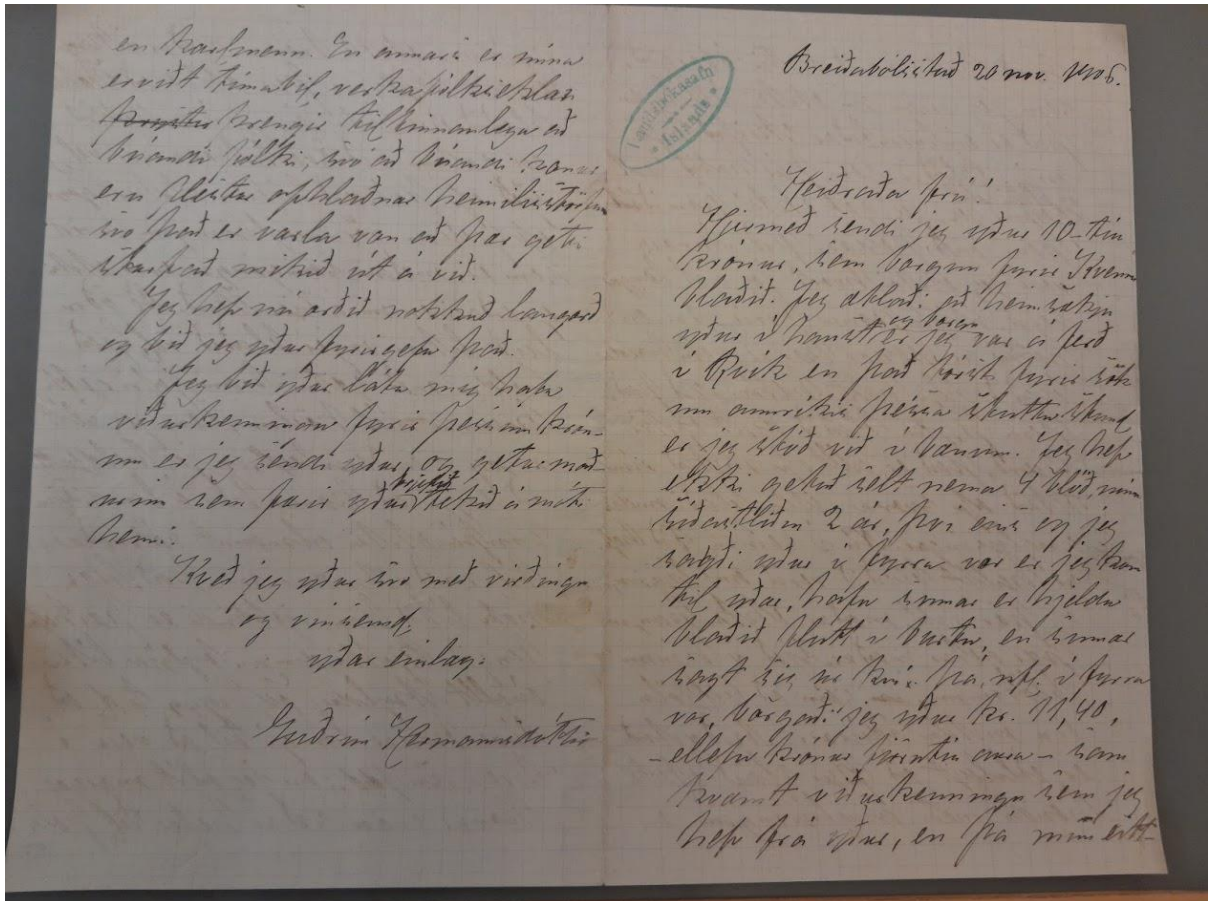 en karlmenn. En annars er núna
ervidt tímabil, verkafólkseklan
þrengir tilfinnanlega að
búandi fólki, svo að búandi konur
eru flestar ofhlaðnar heimilisstörfum
svo það er varla von að þær geti
skarpað mikið út á við.
Jeg hef nú orðið nokkuð langorð
og bið jeg yður fyrirgefa það.
Jeg bið yður láta mig hafa
viðurkenningu fyrir þessum krón-
um er jeg sendi yður, og getur mað-
urinn sem færir yður brjefið tekið á móti
henni.
Kveð jeg yður svo með virðingu
og vinsemd.
yðar einlæg.
Guðrún Hermannsdóttir
Landsbókasafn
Íslands
Breiðabólsstað 20 nov. 1906.
Heiðraða frú!
Hjermeð sendi jeg yður 10 - tíu
krónur, sem borgun fyrir Kvenna
blaðið. Jeg ætlaði að heimsækja
yður í haust og borga er jeg var á ferð
í Rvík en það fórst fyrir sök
um annríkis þessa stuttu stund
er jeg stóð við í bænum. Jeg hef
ekki getað selt nema 4 blöð núna
síðastliðin 2 ár, því eins og jeg
sagði yður í fyrra vor er jeg kom
til yðar, hafa sumar er hjeldu
blaðið flutt í burtu, en sumar
sagt sig úr kví. Þá, nfl. í fyrra
vor, borgaði jeg yður kr. 11,40,
- ellefu krónur fjörutíu aura - sam
kvæmt viðurkenningu sem jeg
hef frá yður, en þá mun eitt-